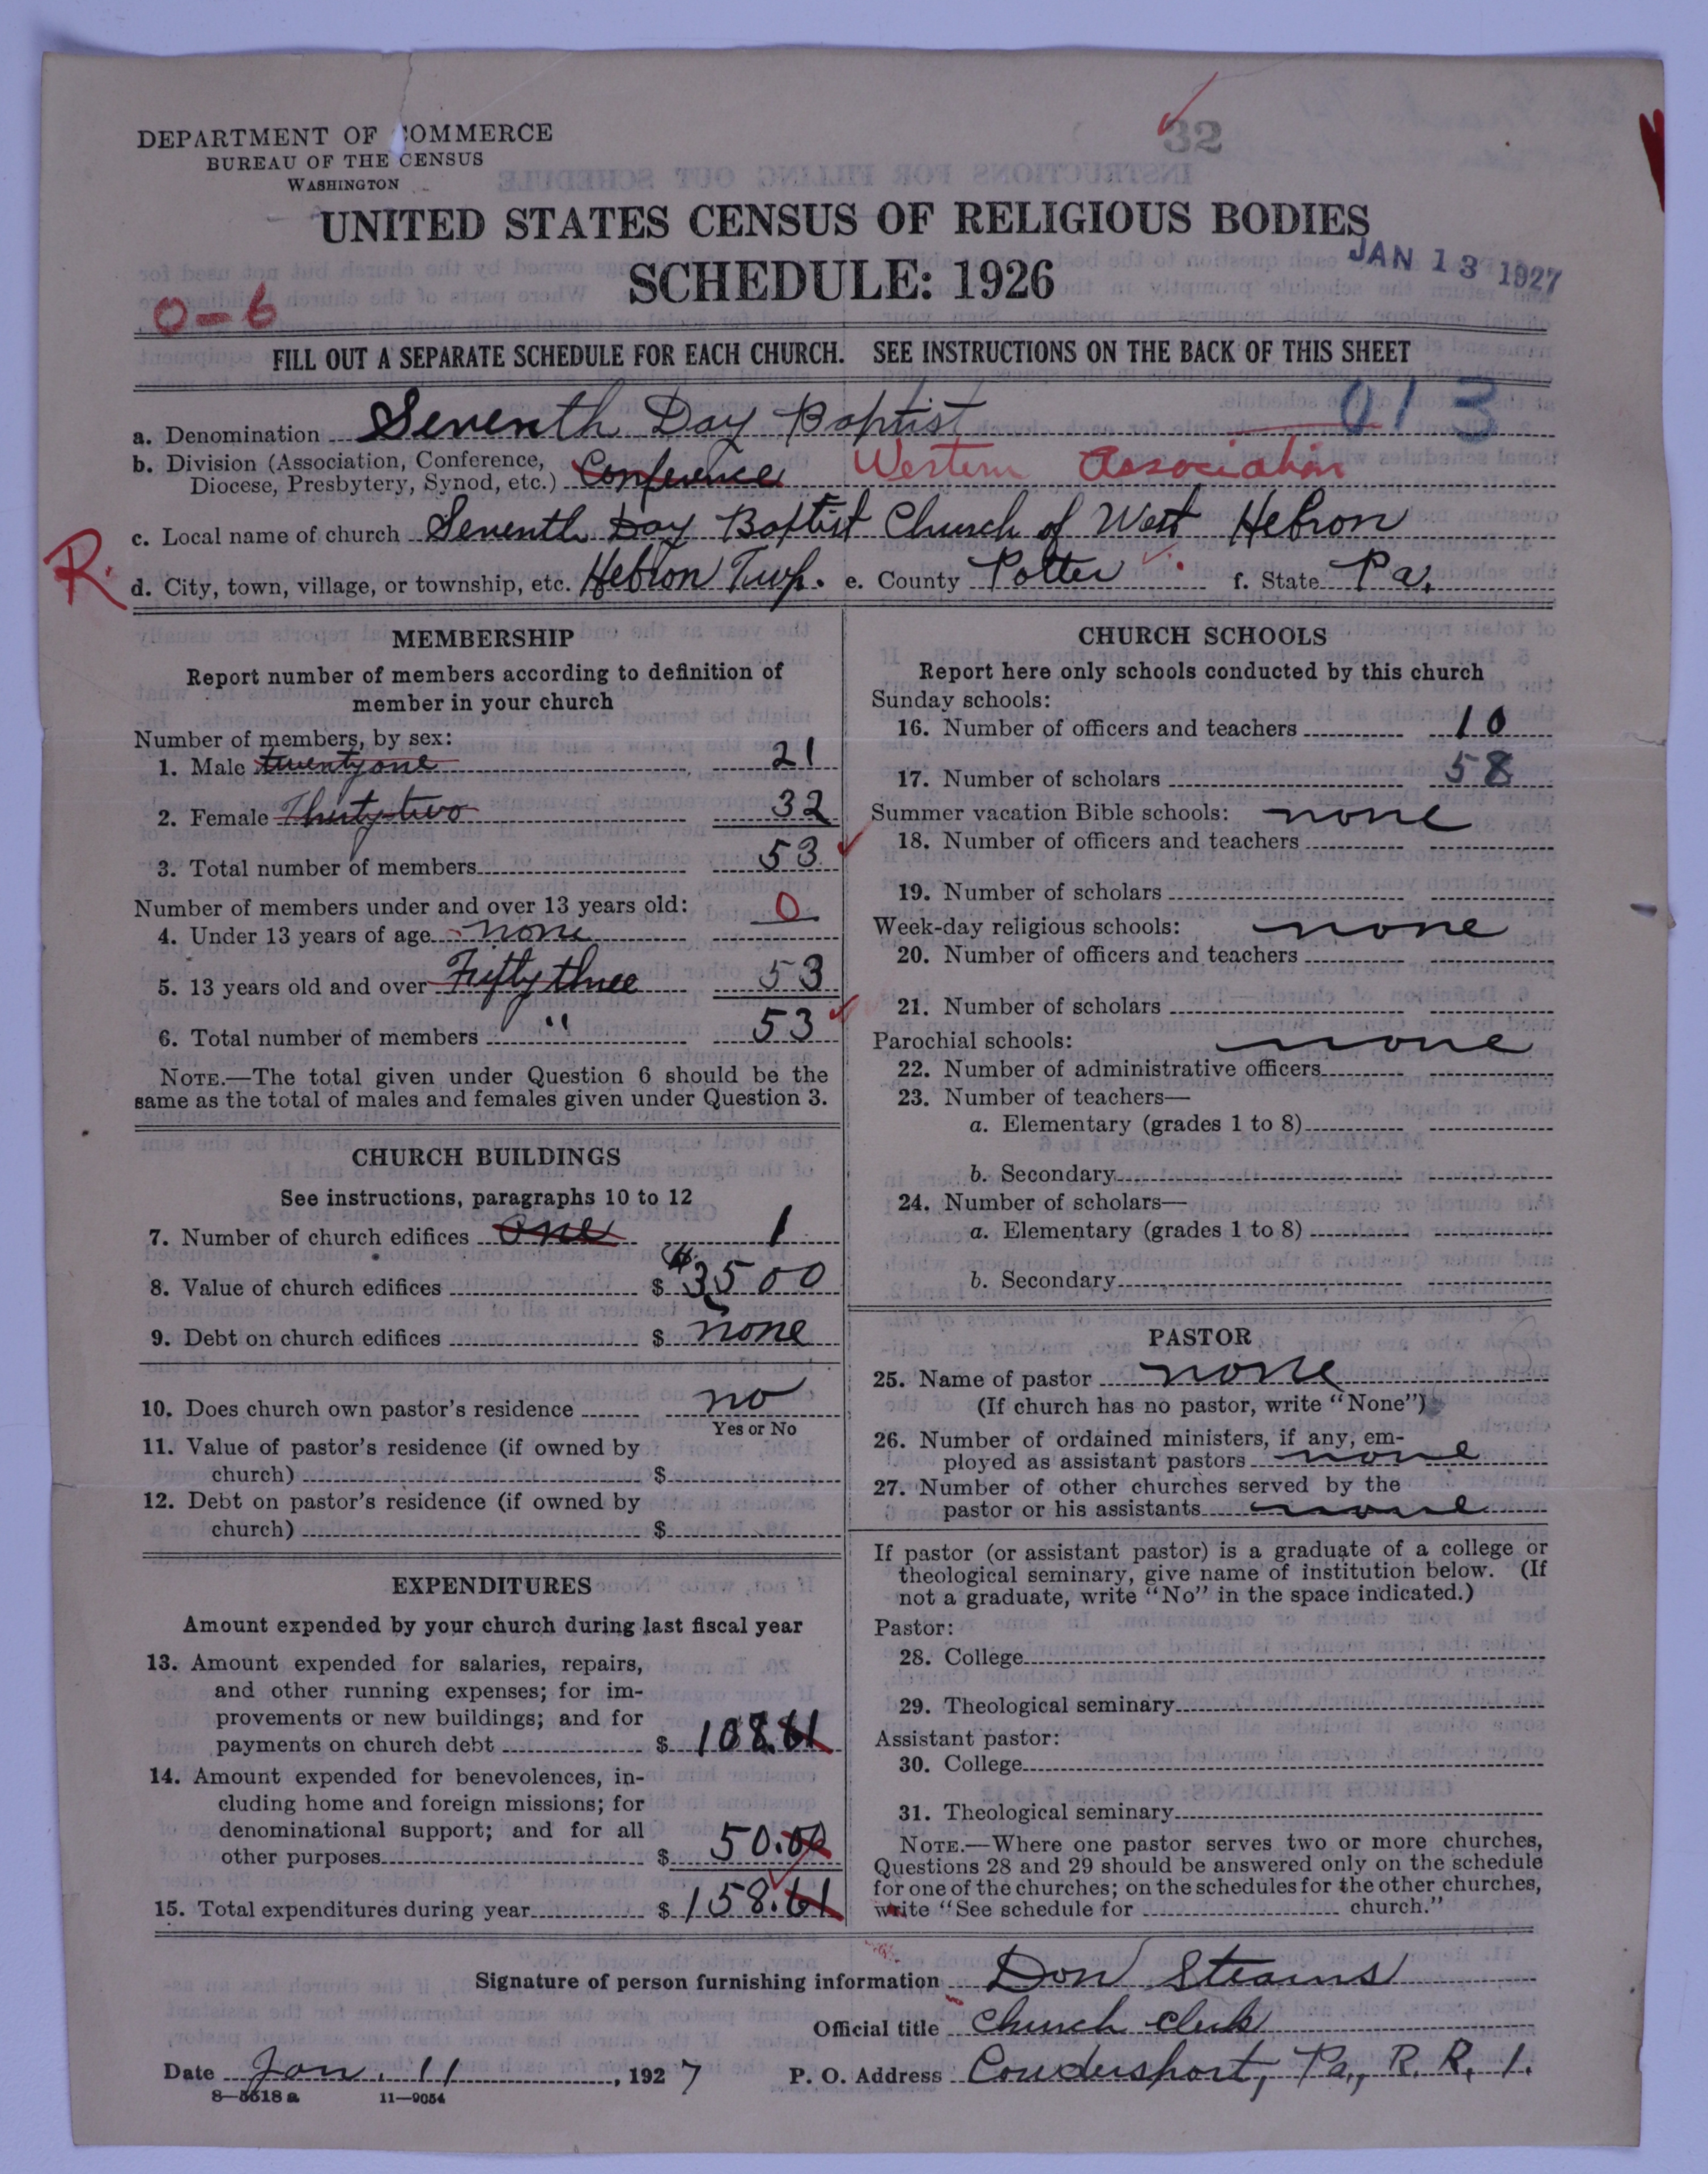 32
DEPARTMENT OF COMMERCE
BUREAU OF THE CENSUS
WASHINGTON
UNITED STATES CENSUS OF RELIGIOUS BODIES
SCHEDULE: 1926
JAN 13 1927
0-6
FILL OUT A SEPARATE SCHEDULE FOR EACH CHURCH. SEE INSTRUCTIONS ON THE BACK OF THIS SHEET
013
a. Denomination Seventh Day Baptist
b. Division (Association, Conference, Diocese, Presbytery, Synod, etc.) Conference Western Association
c. Local name of church Seventh Day Baptist Church of West Hebron
R.
d. City, town, village, or township, etc. Hebron Twp. e. County Potter f. State Pa.
MEMBERSHIP
Report number of members according to definition of
member in your church
Number of members, by sex:
1. Male twenty one 21
2. Female Thirty two 32
3. Total number of members 53
Number of members under and over 13 years old: 0
4. Under 13 years of age none
5. 13 years old and over Fifty three 53
6. Total number of members " 53
NOTE.—The total given under Question 6 should be the
same as the total of males and females given under Question 3.
CHURCH BUILDINGS
See instructions, paragraphs 10 to 12
7. Number of church edifices one 1
8. Value of church edifices $ 3500
9. Debt on church edifices $ none
10. Does church own pastor's residence no
Yes or No
11. Value of pastor's residence (if owned by
church) $
12. Debt on pastor's residence (if owned by
church) $
EXPENDITURES
Amount expended by your church during last fiscal year
13. Amount expended for salaries, repairs,
and other running expenses; for im-
provements or new buildings; and for
payments on church debt $ 108.61
14. Amount expended for benevolences, in-
cluding home and foreign missions; for
denominational support; and for all
other purposes $ 50.00
15. Total expenditures during year $ 158.61
CHURCH SCHOOLS
Report here only schools conducted by this church
Sunday schools:
16. Number of officers and teachers 10
17. Number of scholars 58
Summer vacation Bible schools: none
18. Number of officers and teachers
19. Number of scholars
Week-day religious schools: none
20. Number of officers and teachers
21. Number of scholars
Parochial schools: none
22. Number of administrative officers
23. Number of teachers—
a. Elementary (grades 1 to 8)
b. Secondary
24. Number of scholars—
a. Elementary (grades 1 to 8)
b. Secondary
PASTOR
25. Name of pastor none
(If church has no pastor, write "None")
26. Number of ordained ministers, if any, em-
ployed as assistant pastors none
27. Number of other churches served by the
pastor or his assistants none
If pastor (or assistant pastor) is a graduate of a college or
theological seminary, give name of institution below. (If
not a graduate, write "No" in the space indicated.)
Pastor:
28. College
29. Theological seminary
Assistant pastor:
30. College
31. Theological seminary
NOTE.—Where one pastor serves two or more churches,
Questions 28 and 29 should be answered only on the schedule
for one of the churches; on the schedules for the other churches,
write "See schedule for church."
Signature of person furnishing information Don Stearns
Official title Church clerk
Date Jan. 11, 1927 P. O. Address Coudersport, Pa., R. R. 1.
8—5618 a 11—9054